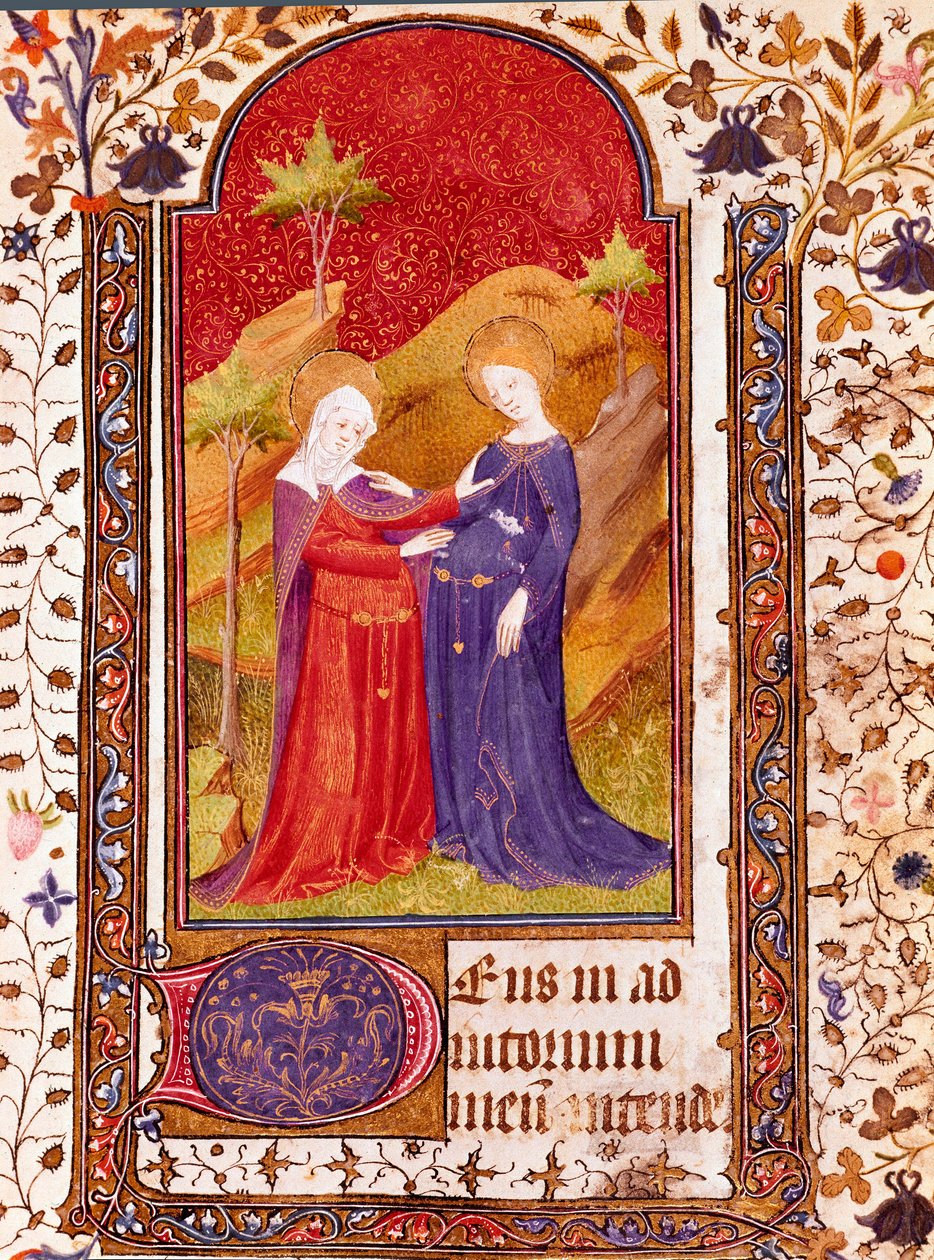 DEus in ad
iutorium
meū intende.